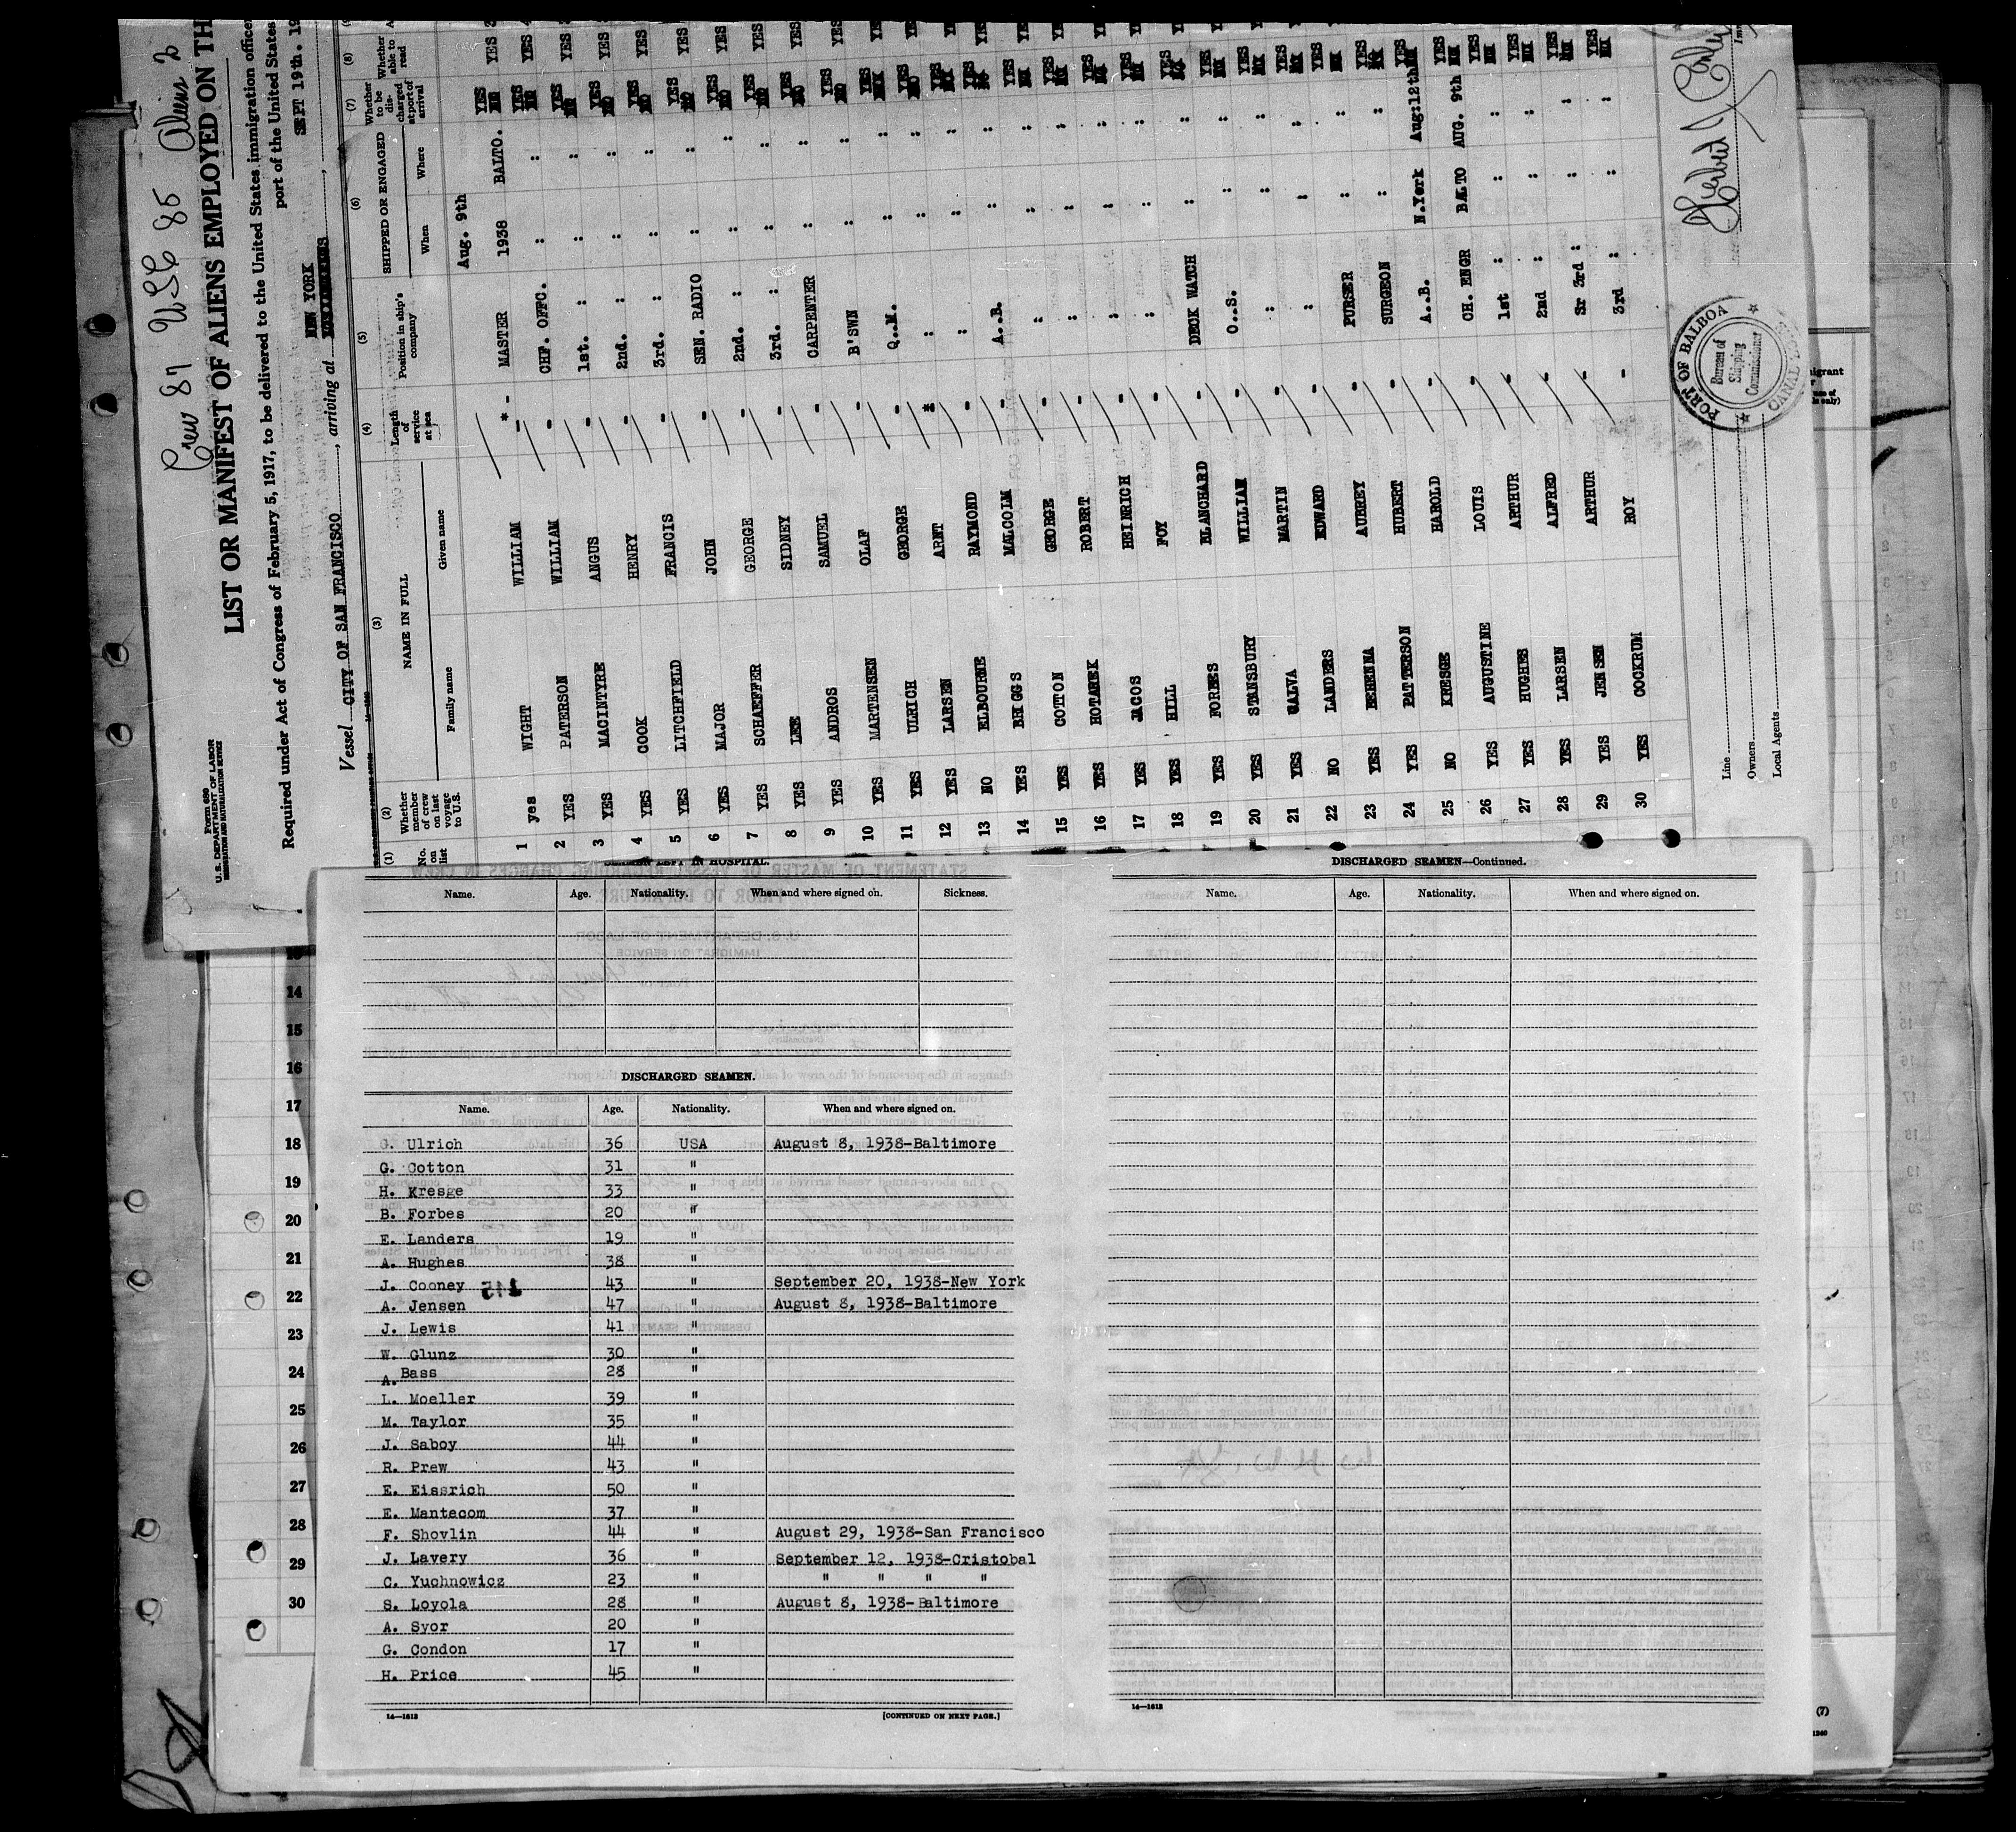 Crew 87 USC 85 Aliens 2
Form 680
U. S. DEPARTMENT OF LABOR
IMMIGRATION AND NATURALIZATION SERVICE
LIST OR MANIFEST OF ALIENS EMPLOYED ON TH
Required under Act of Congress of February 5, 1917, to be delivered to the United States immigration office
port of the United States
NEW YORK
Vessel CITY OF SAN FRANCISCO, arriving at SEPT 19th. 19
(1) (2) (3) (4) (5) (6) (7) (8)
No. on list
Whether member of crew on last voyage to U.S.
NAME IN FULL
Family name Given name
Length of service at sea
Position in ship's company
SHIPPED OR ENGAGED
When Where
Whether to be discharged at port of arrival
Whether able to read
Aug. 9th
1 yes WIGHT WILLIAM MASTER 1938 BALTO. YES YES
2 YES PATERSON WILLIAM CHF. OFFC. : : YES
3 YES MACINTYRE ANGUS 1st. : : YES
4 YES COOK HENRY 2nd. : : YES
5 YES LITCHFIELD FRANCIS 3rd. : : YES
6 YES MAJOR JOHN SEN. RADIO : : YES
7 YES SCHAEFFER GEORGE 2nd. : : YES
8 YES LEE SIDNEY 3rd. : : YES
9 YES ANDROS SAMUEL CARPENTER : : YES
10 YES MARTENSEN OLAF B'SWN : : YES
11 YES ULRICH GEORGE Q..M. : : YES
12 YES LARSEN ARNT : : : YES
13 NO ELBOURNE RAYMOND : : : YES
14 YES BRIGGS MALCOLM A..B. : : YES
15 YES COTTON GEORGE : : : YES
16 YES HOTAREK ROBERT : : : YES
17 YES JACOS HEINRICH : : : YES
18 YES HILL FOY : : : YES
19 YES FORBES BLANCHARD DECK WATCH : : YES
20 YES STANSBURY WILLIAM O..S. : : YES
21 YES CALVA MARTIN : : : YES
22 NO LANDERS EDWARD : : : YES
23 YES BEHENNA AUBREY PURSER : : YES
24 YES PATTERSON HUBERT SURGEON : : YES
25 NO KRESGE HAROLD A..B. N.York Aug:12th YES
26 YES AUGUSTINE LOUIS CH. ENGR BALTO AUG. 9th YES
27 YES HUGHES ARTHUR 1st : : : YES
28 YES LARSEN ALFRED 2nd : : : YES
29 YES JENSEN ARTHUR Sr 3rd : : : YES
30 YES COCKRUM ROY 3rd : : :
Line
Owners
Local Agents
PORT OF BALBOA
Bureau of Shipping Commissioner
CANAL ZONE
LEFT IN HOSPITAL.
Name. Age. Nationality. When and where signed on. Sickness.
DISCHARGED SEAMEN.
Name. Age. Nationality. When and where signed on.
G. Ulrich 36 USA August 8, 1938-Baltimore
G. Cotton 31 "
H. Kresge 33 "
B. Forbes 20 "
E. Landers 19 "
A. Hughes 38 "
J. Cooney 43 " September 20, 1938-New York
A. Jensen 47 " August 8, 1938-Baltimore
J. Lewis 41 "
W. Glunz 30 "
A. Bass 28 "
L. Moeller 39 "
M. Taylor 35 "
J. Saboy 44 "
R. Prew 43 "
E. Eissrich 50 "
E. Mantecom 37 "
F. Shovlin 44 " August 29, 1938-San Francisco
J. Lavery 36 " September 12, 1938-Cristobal
C. Yuchnowicz 23 " " " " "
S. Loyola 28 " August 8, 1938-Baltimore
A. Syor 20 "
G. Condon 17 "
H. Price 45 "
14—1612
[CONTINUED ON NEXT PAGE.]
DISCHARGED SEAMEN—Continued.
Name. Age. Nationality. When and where signed on.
14—1612
14
15
16
17
18
19
20
21
22
23
24
25
26
27
28
29
30
(7)